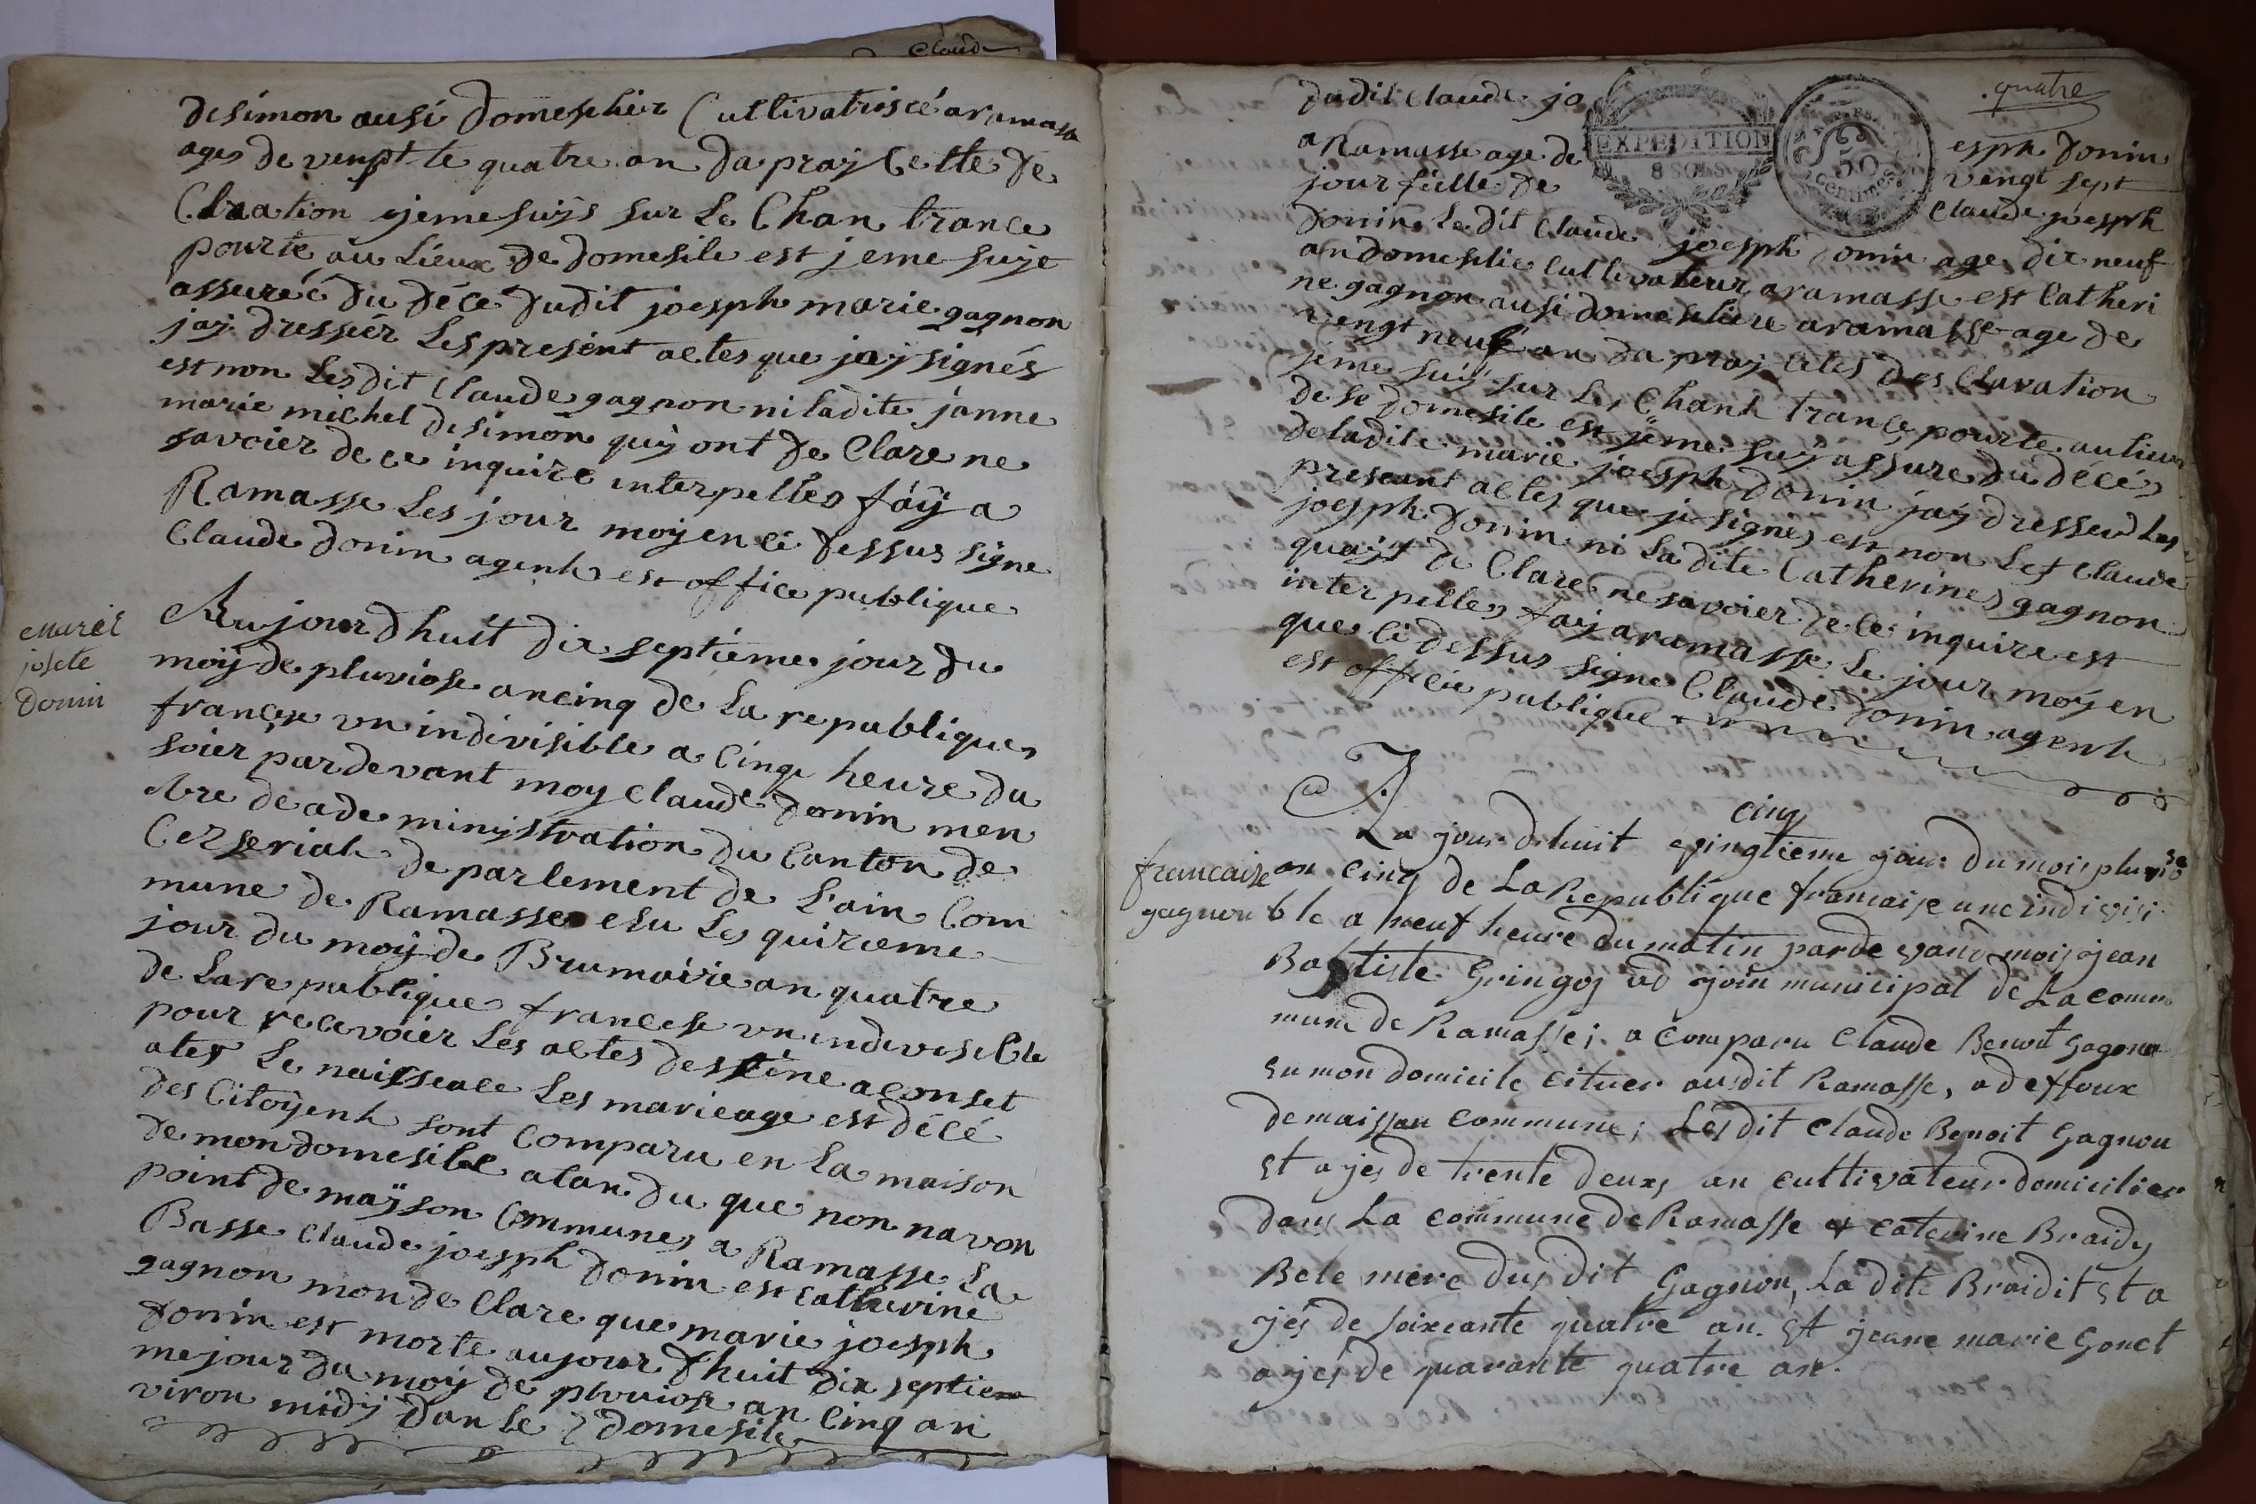 Claude
desimon ausi Domeslier Cultivatriscé aramasse
ages de vengt te quatre an Da pray Cette De
Claation ejemesuÿs sur Le Chan trance
pourte au Lieux De domesile est jeme suye
assureé Du Déce Dudit joesph marie gagnon
jay dressiér Les présent actes que jay signés
est non Les dit Claude gagnon ni ladite janne
marie michel desimon quÿ ont De Clare ne
savoier de ce inquire interpelles faÿ a
Ramasse Les jour moÿen cé dessus signe
Claude donin agenh est office publique
Marie
josete
Donin
Aujourdhuit dix septiéme jour du
moÿ de pluviose ancinq de La republiques
françese vn indivisible a Cinqe heure du
soier pardevant moy Claude donin men
bre de ade minÿstration du Canton de
Cerseriah de parlement de L'ain Com
mune de Ramasse elu Les quinzeme
jour du moÿ de Brumaire an quatre
de Lare publique françese vn indevisible
pour recevoier Les actes desstine aconset
ates Le naisseace Les marieage est décé
des Citoÿenh sont Comparu en La maison
de mondomesile atandu que non navon
point de maÿson Communes a Ramasse La
Basse Claude joesph donin est Catherine
gagnon mon de Clare que marie joesph
Donin est morte aujour d'huit dix septiem
mejour du moÿ de pluviose an Cinq an
viron midÿ Dan Le Domesile
quatre
EXPEDITION
8 SOLS
50
centimes
dudit Claude jo esph Donin
a Ramasse age de vengt sept
jour fille de Claude joesph
donin Ledit Claude joesph donin age dix neuf
an domeslie Cultivateur aramasse est Catheri
ne gagnon ausi domesliere aramasse age de
vengt neuf an Da pray Cetes Des Claration
jeme suÿ sur Les Chanh trance pourte aulieux
de se domesile est jeme suÿ assure du décés
deladite marie joesph donin jaÿ dresser Les
present actes que je signes est non Les Claude
joesph Donin ni Ladite Catherines gagnon
quaÿt de Clare ne savoier de ce inquire est
interpelles faÿ aramasse Le jour moÿen
que ci dessus signe Claude donin agenh
est office publique
cinq
La jour dhuit vingtieme jour du mois pluviose
francaise
gagnon
an cinq de La Republique francaise une indivisi
ble a neuf heure du matin parde vant mois jean
Baptiste Gringoz ad join municipal de La comm
mune de Ramasse; a Comparu Claude Benoit Gagnon
En mon domicile Cituer ausdit Ramasse, ad effoux
de maisson Commune; Lesdit Claude Benoit Gagnon
Et ajes de trente deuxs an cultivateur domicilier
dans La commune de Ramasse et Caterine Braidy
Bele mere dus dit Gagnon, La dite Braidit Et a
jés de soixcante quatre an. Et jeane marie Gonet
ajes de quarante quatre an.